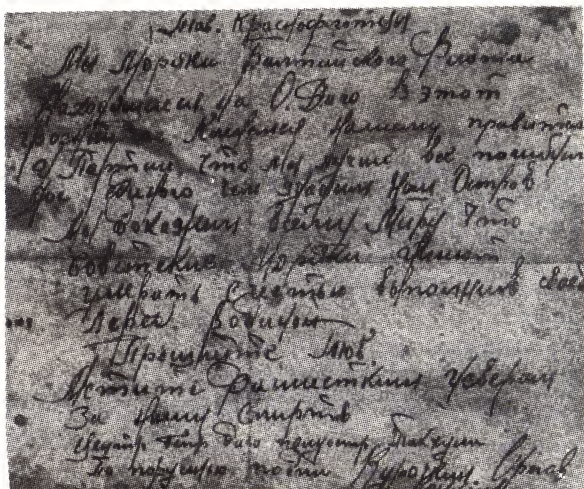 Тов. Краснофлотцы
Мы Моряки Балтийского Флота
находившиеся на О. Даго В этот
грозный час Клянемся нашему правительству
и Партии что мы лучше все погибнем
до единого чем сдадим наш Остров
Мы докажем всему Миру что
Советские моряки умеют
умереть с честью выполнив свой
перед Родиной
Прощайте Тов.
Мстите Фашистским извергам
За нашу Смерть
По поручению подписали Курочкин. Орлов